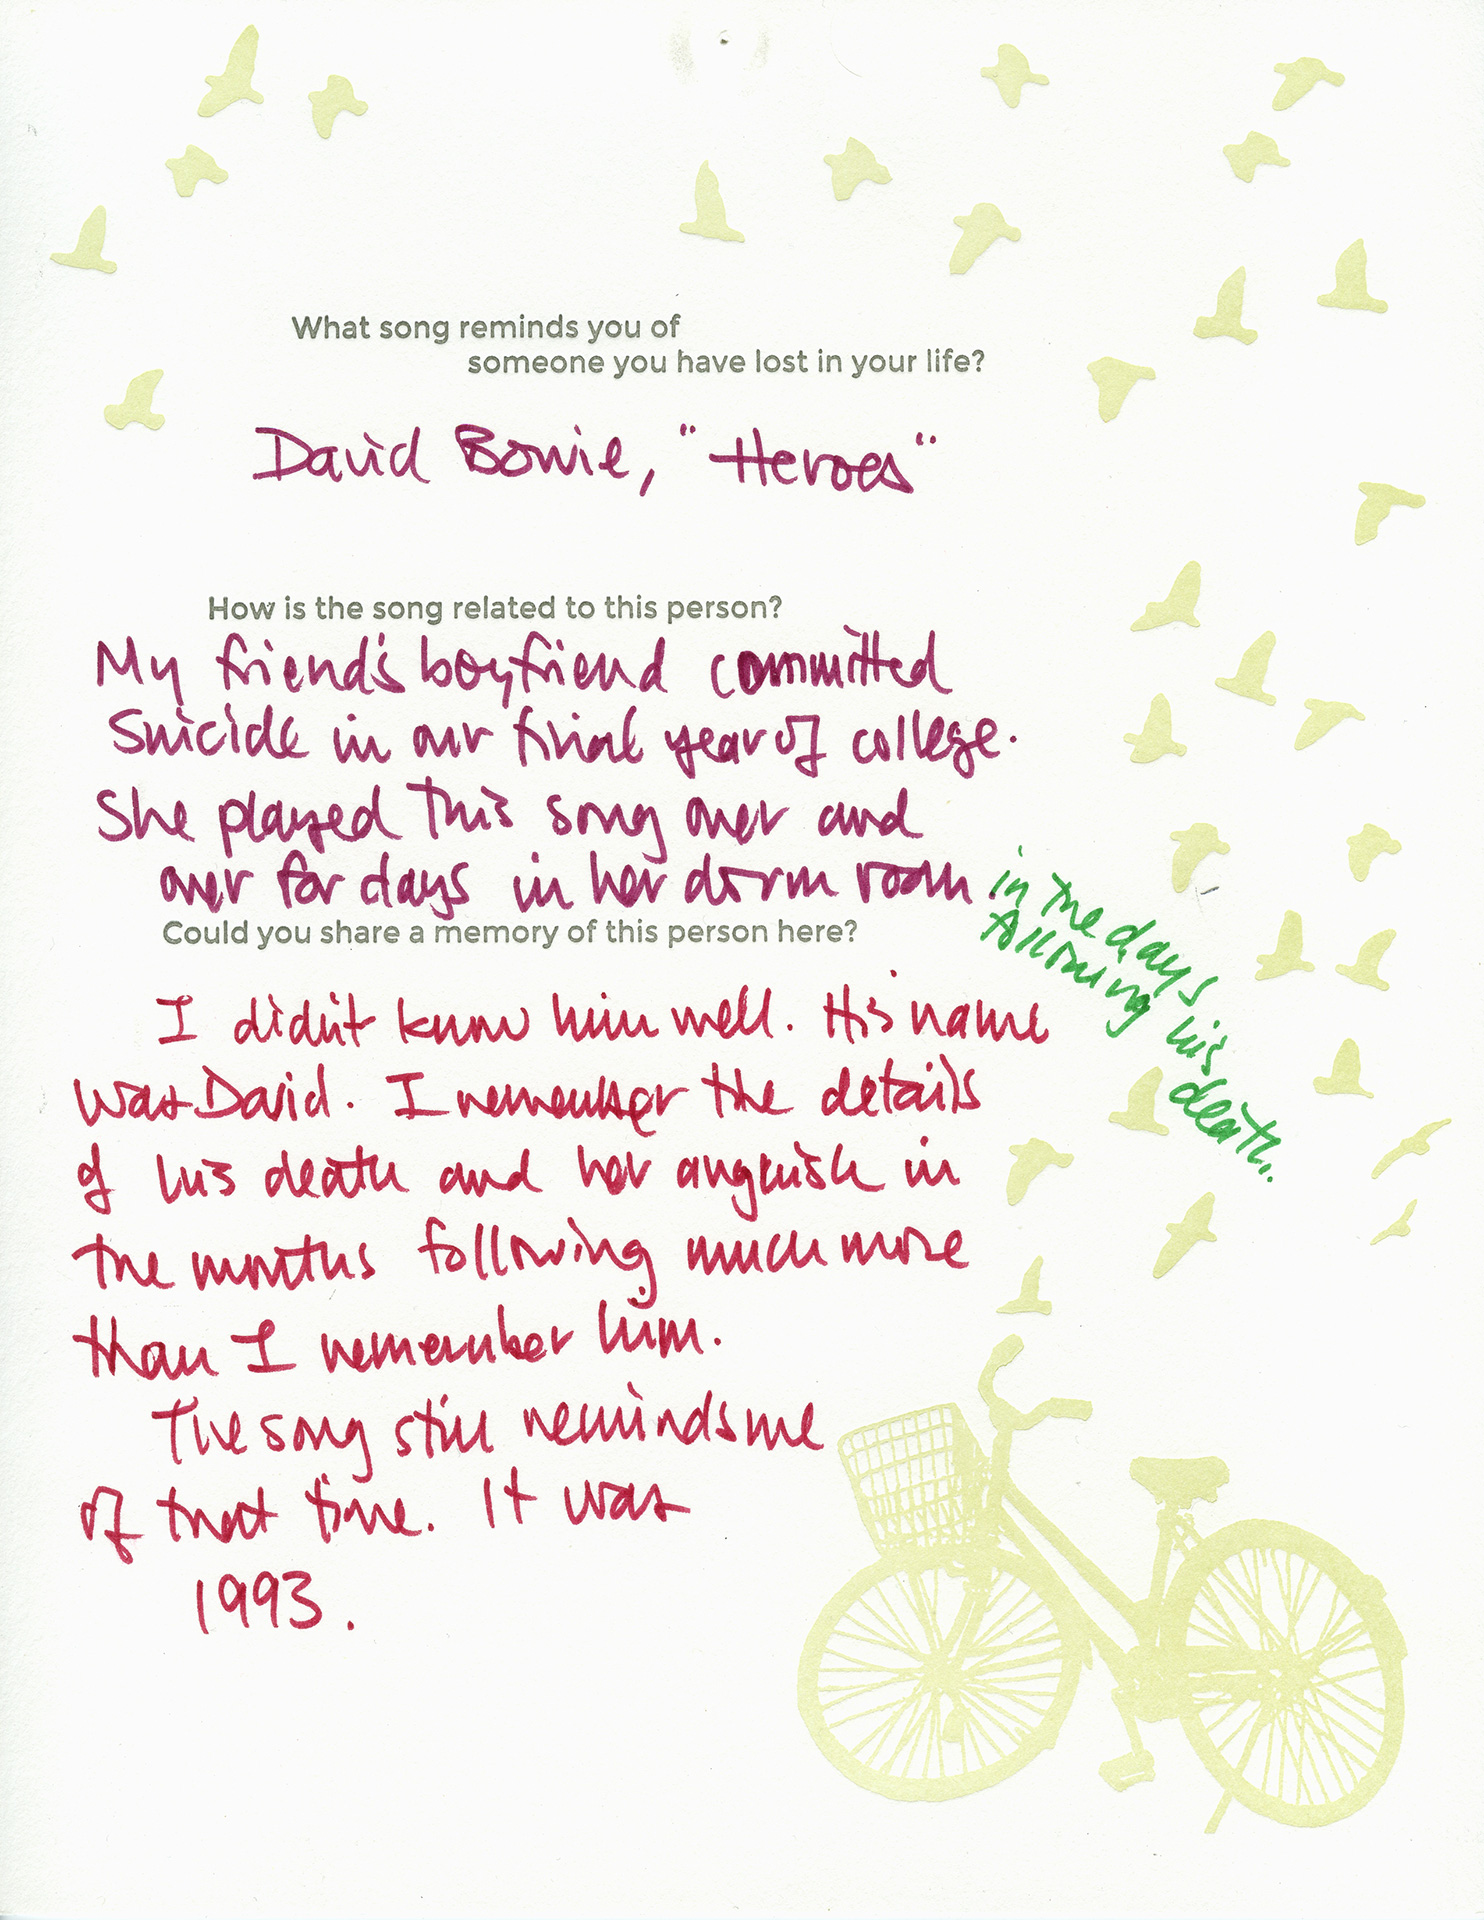 What song reminds you of
someone you have lost in your life?
David Bowie, "Heroes"
How is the song related to this person?
My friend's boyfriend committed
suicide in our final year of college.
She played this song over and
over for days in her dorm room
in the days
following his
death.
Could you share a memory of this person here?
I didn't know him well. His name
was David. I remember the details
of his death and her anguish in
the months following much more
than I remember him.
The song still reminds me
of that time. It was
1993.